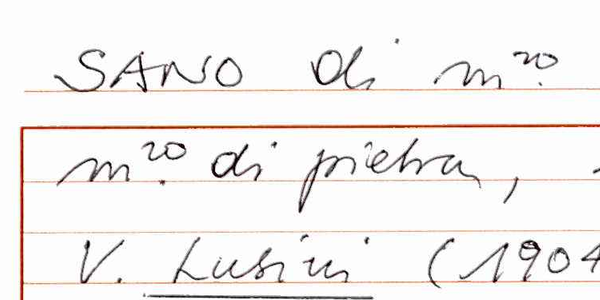 SANO di m.ro
m.ro di pietra,
V. Lusini (1904